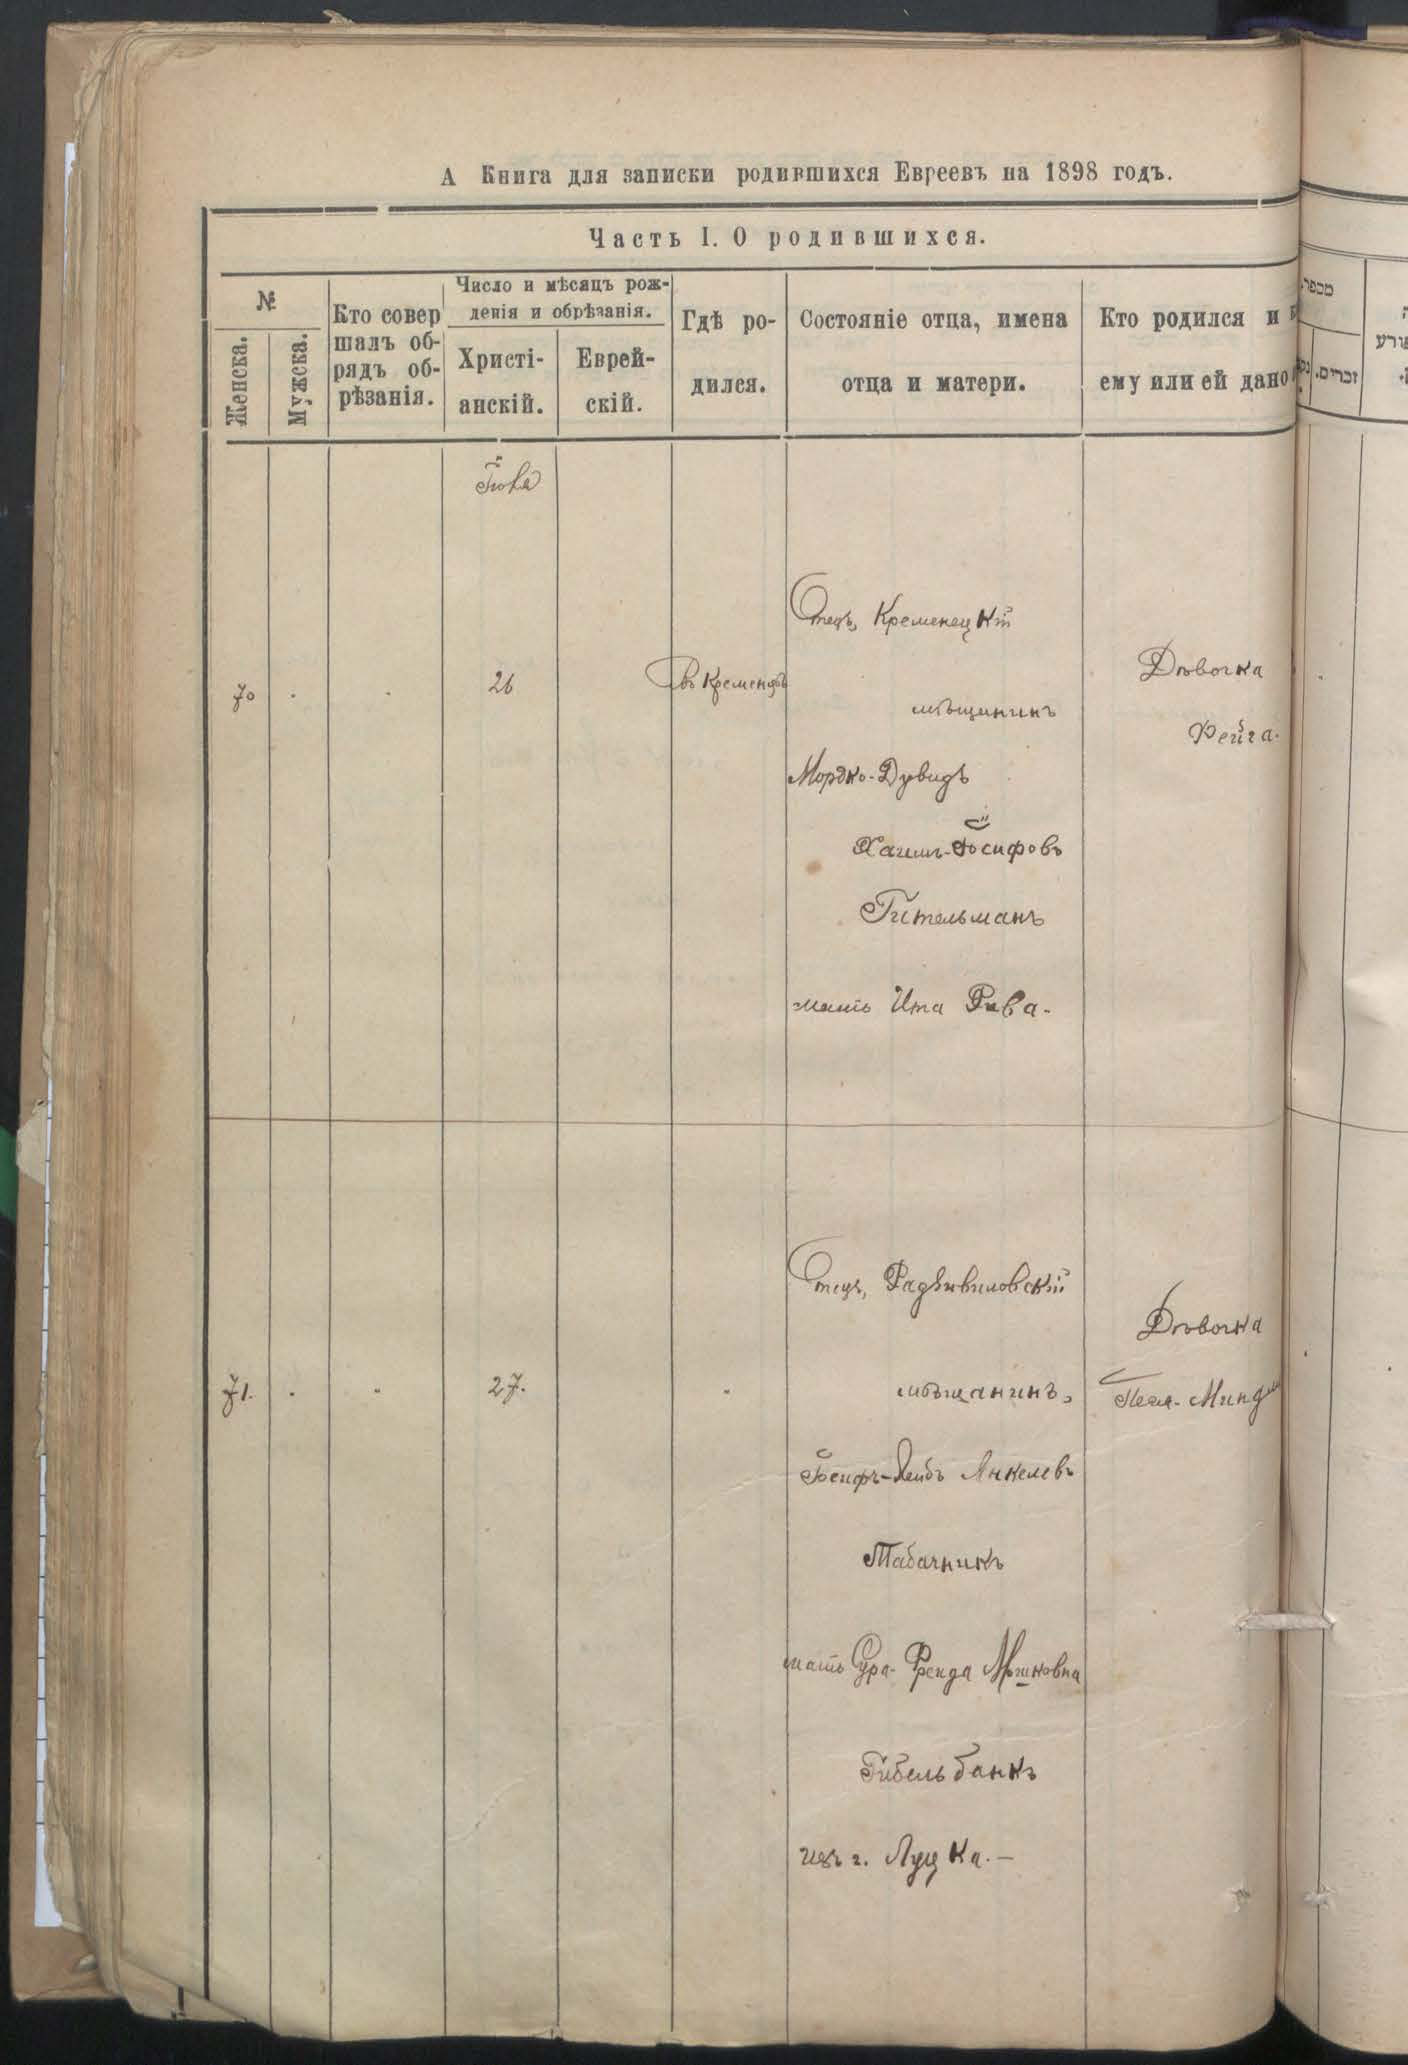 А Книга для записки родившихся Евреевъ на 1898 годъ.
Часть I. О родившихся.
№
Женска.
Мужска.
Кто совер
шалъ об-
рядъ об-
рѣзанія.
Число и мѣсяцъ рож-
денія и обрѣзанія.
Христі-
анскій.
Еврей-
скій.
Гдѣ ро-
дился.
Состояніе отца, имена
отца и матери.
Кто родился и
ему или ей дано
מספר
זכרים.
70
26
въ Кременцѣ
Отецъ, Кременецкій
мѣщанинъ
Мордко-Дувидъ
Хаимъ-Іосифовъ
Гительманъ
мать Ита Рива.
Дѣвочка
Фейга.
71.
"
27.
"
Отецъ, Радзивиловскій
мѣщанинъ,
Іосифъ-Лейбъ Янкелевъ
Табачникъ
мать Сура-Фрейда Мошковна
Гибельбанкъ
изъ г. Луцка.—
Дѣвочка